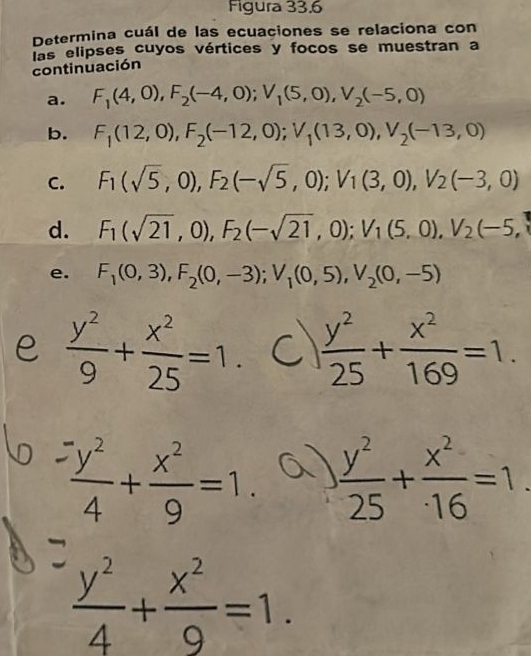 Figura 33.6
Determina cuál de las ecuaciones se relaciona con
las elipses cuyos vértices y focos se muestran a
continuación
a. F₁(4, 0), F₂(−4, 0); V₁(5, 0), V₂(−5, 0)
b. F₁(12, 0), F₂(−12, 0); V₁(13, 0), V₂(−13, 0)
c. F1(√5, 0), F2(−√5, 0); V1(3, 0), V2(−3, 0)
d. F1(√21, 0), F2(−√21, 0); V1(5, 0), V2(−5,
e. F₁(0, 3), F₂(0, −3); V₁(0, 5), V₂(0, −5)
e y²/9 + x²/25 = 1. c) y²/25 + x²/169 = 1.
b = y²/4 + x²/9 = 1. a) y²/25 + x²/16 = 1.
d = y²/4 + x²/9 = 1.